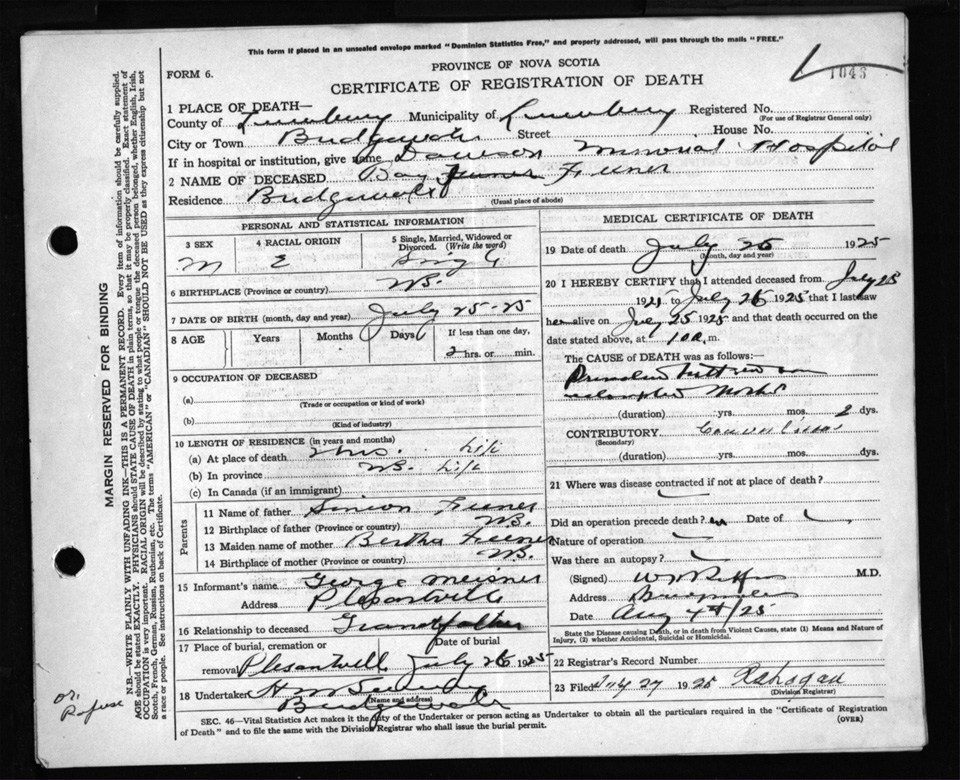 This form if placed in an unsealed envelope marked "Dominion Statistics Free," and property addressed, will pass through the mails "FREE."
PROVINCE OF NOVA SCOTIA
FORM 6.
CERTIFICATE OF REGISTRATION OF DEATH
1046
1 PLACE OF DEATH—
County of Lunenburg Municipality of Lunenburg Registered No.
(For use of Registrar General only)
City or Town Bridgewater Street House No.
If in hospital or institution, give name Dawson Memorial Hospital
2 NAME OF DECEASED Feener
Residence Bridgewater (Usual place of abode)
PERSONAL AND STATISTICAL INFORMATION
3 SEX
4 RACIAL ORIGIN
5 Single, Married, Widowed or Divorced. (Write the word)
M E Single
6 BIRTHPLACE (Province or country) N.S.
7 DATE OF BIRTH (month, day and year) July 25-25
8 AGE Years Months Days If less than one day,
2 hrs. or min.
9 OCCUPATION OF DECEASED
(a)
(Trade or occupation or kind of work)
(b)
(Kind of industry)
10 LENGTH OF RESIDENCE (in years and months)
(a) At place of death 2 hrs. Life
(b) In province N.S. Life
(c) In Canada (if an immigrant)
Parents
11 Name of father Simeon Feener
12 Birthplace of father (Province or country) N.S.
13 Maiden name of mother Bertha Feener
14 Birthplace of mother (Province or country) N.S.
15 Informant's name George Meisner
Address Plesantville
16 Relationship to deceased Grandfather
17 Place of burial, cremation or removal Plesantville
Date of burial July 26 1925
18 Undertaker
(Name and address)
Bridgewater
MEDICAL CERTIFICATE OF DEATH
19 Date of death July 25 1925
(Month, day and year)
20 I HEREBY CERTIFY that I attended deceased from July 25
192 to July 26 1925 that I last saw
h alive on July 25 1925 and that death occurred on
date stated above, at 10 a. m.
The CAUSE OF DEATH was as follows:—
(duration) yrs. mos. 2 dys.
CONTRIBUTORY Convulsions
(Secondary)
(duration) yrs. mos. dys.
21 Where was disease contracted if not at place of death?
Did an operation precede death? no Date of
Nature of operation
Was there an autopsy?
(Signed) M.D.
Address
Date Aug 4th/25
State the Disease causing Death, or in death from Violent Causes, state (1) Means and Nature of Injury, (2) whether Accidental, Suicidal or Homicidal.
22 Registrar's Record Number
23 Filed July 27 1925
(Division Registrar)
SEC. 46—Vital Statistics Act makes it the duty of the Undertaker or person acting as Undertaker to obtain all the particulars required in the "Certificate of Registration
of Death" and to file the same with the Division Registrar who shall issue the burial permit.
(OVER)
MARGIN RESERVED FOR BINDING
N.B.—WRITE PLAINLY WITH UNFADING INK—THIS IS A PERMANENT RECORD. Every item of information should be carefully supplied.
AGE should be stated EXACTLY. PHYSICIANS should STATE CAUSE OF DEATH in plain terms, so that it may be properly classified. Exact statement of
OCCUPATION is very important. RACIAL ORIGIN will be described by stating to what people or tongue the deceased person belonged, whether English, Irish,
Scotch, French, German, Russian, Ruthenian, etc. The terms "AMERICAN" or "CANADIAN" SHOULD NOT BE USED as they express citizenship but not
a race or people. See instructions on back of Certificate.